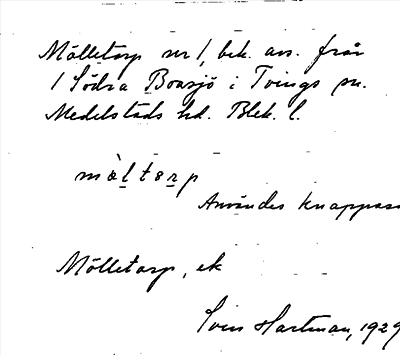 Mölletorp nr 1, bek. avs. från
1 Södra Boasjö i Tvings sn.
Medelstads hd. Blek. l.
mòltorp
Användes knappast
Mölletorp, ek
Sven Hartman, 1929